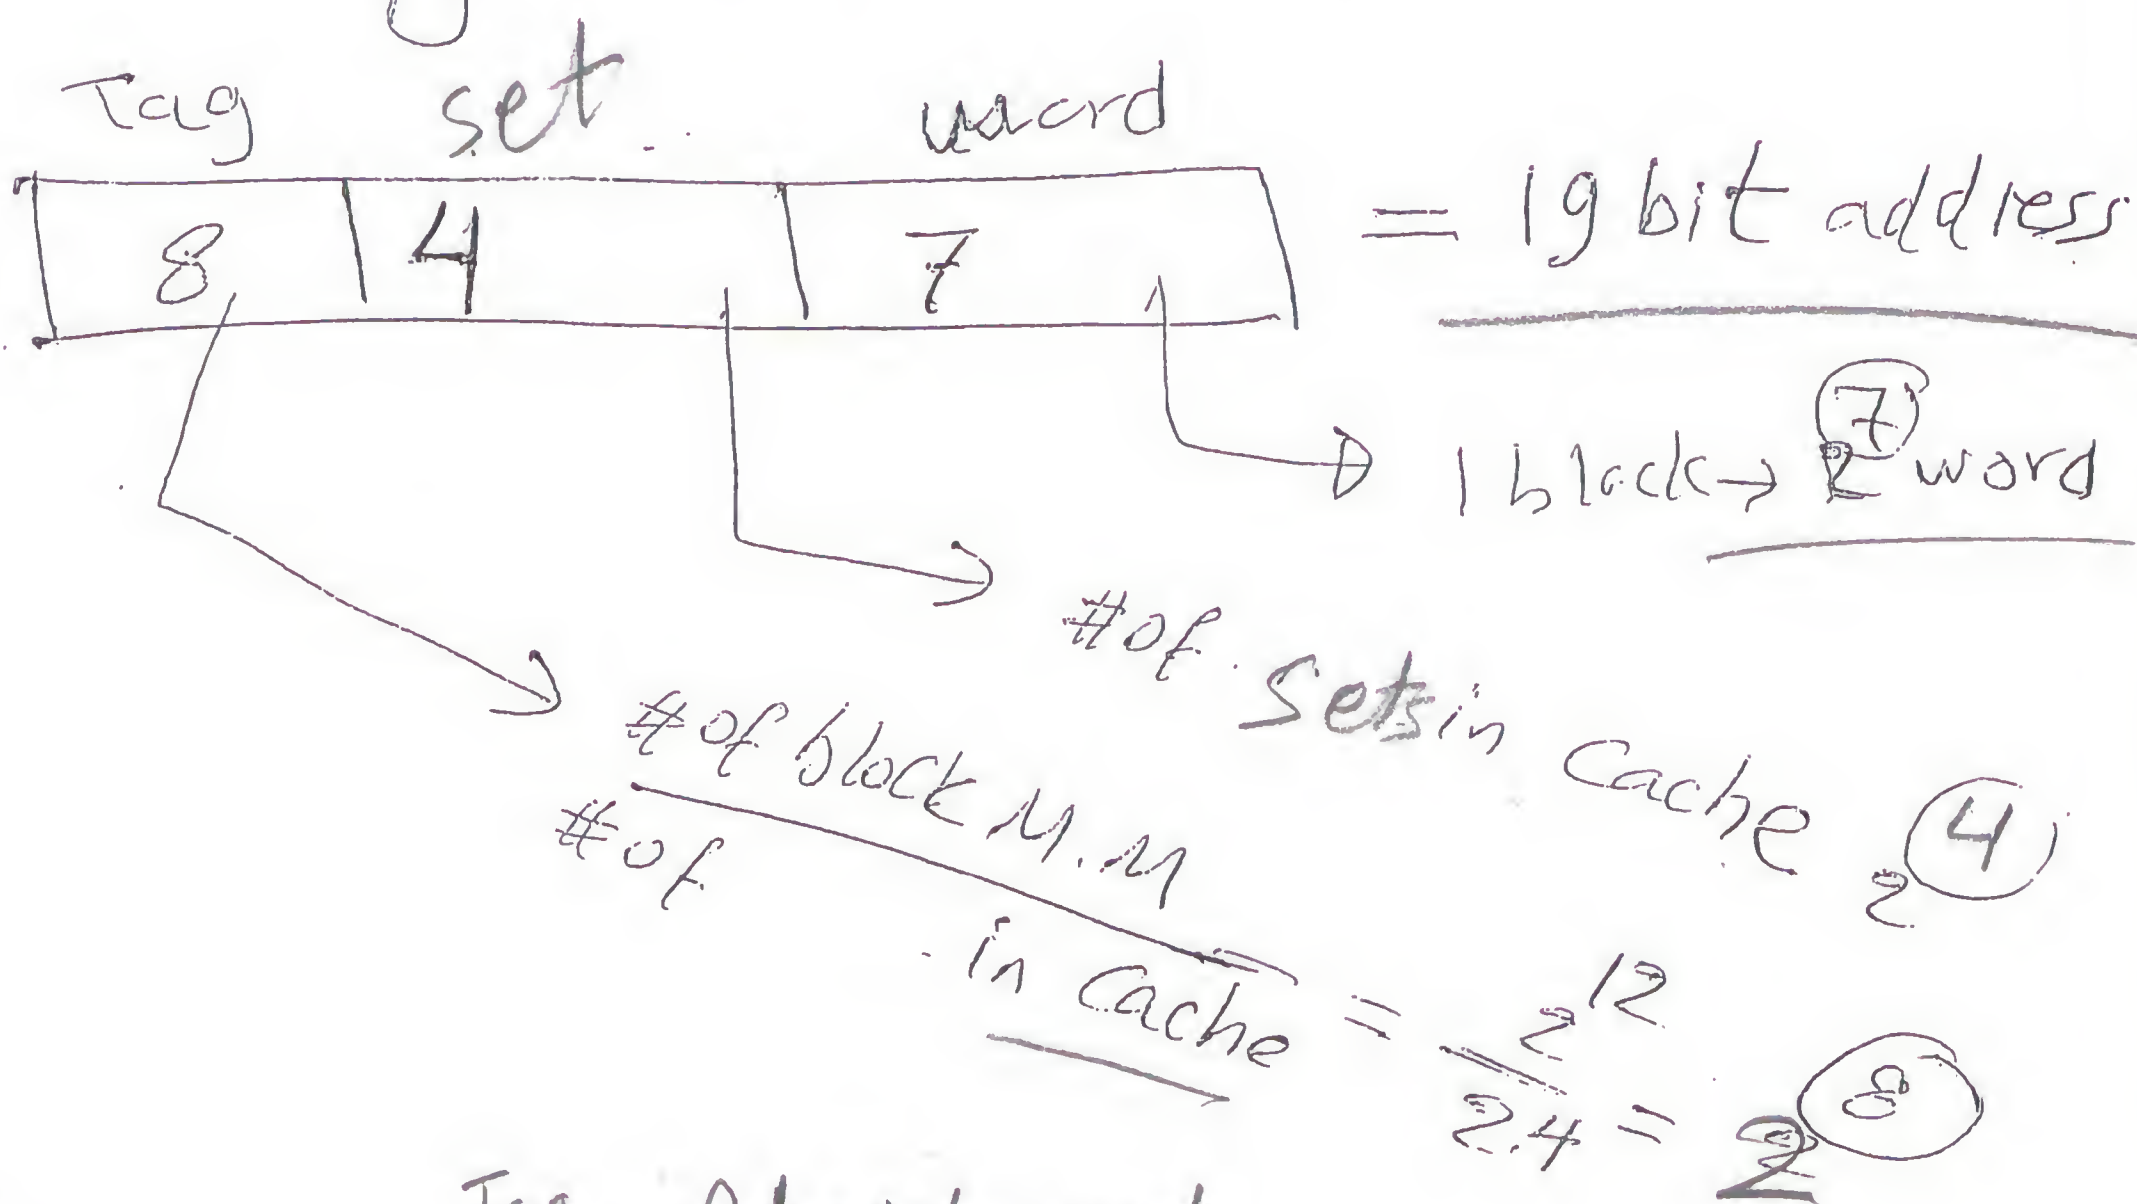 Tag set word
8 4 7 = 19 bit address
1 block → 2^7 word
# of sets in cache 2^4
# of block M.M
# of in cache = 2^12 / 2.4 = 2^8